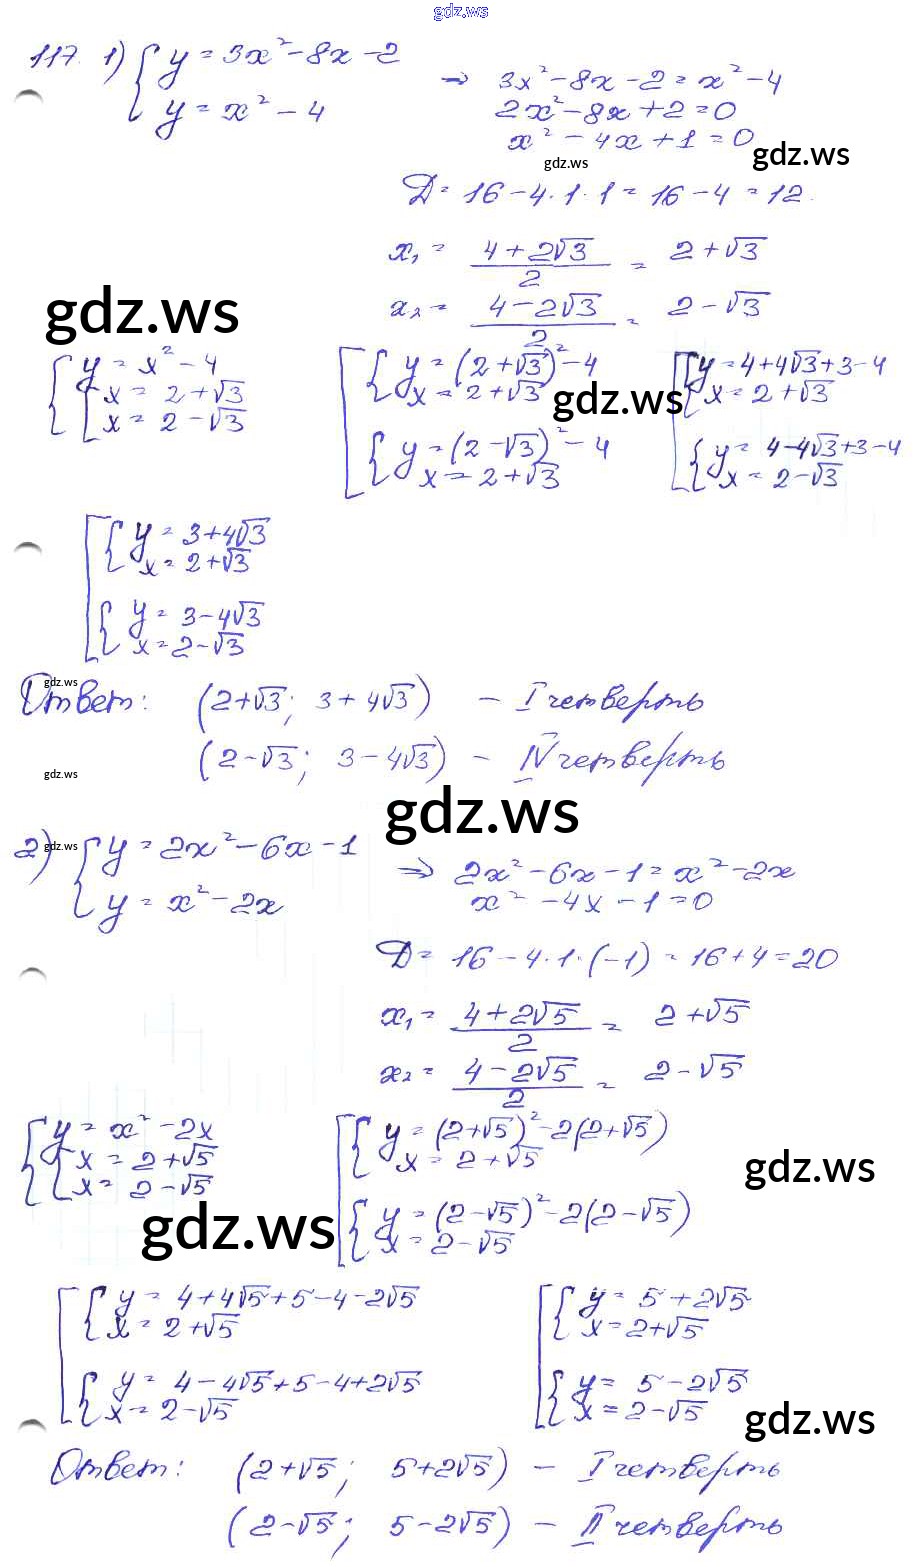 gdz.ws
117. 1) { y = 3x² - 8x - 2
y = x² - 4
=> 3x² - 8x - 2 = x² - 4
2x² - 8x + 2 = 0
x² - 4x + 1 = 0
gdz.ws
gdz.ws
Д = 16 - 4·1·1 = 16 - 4 = 12.
x₁ = (4 + 2√3)/2 = 2 + √3
x₂ = (4 - 2√3)/2 = 2 - √3
gdz.ws
{ y = x² - 4
[ x = 2 + √3
x = 2 - √3
[ { y = (2 + √3)² - 4
x = 2 + √3
{ y = (2 - √3)² - 4
x = 2 + √3
gdz.ws
[ { y = 4 + 4√3 + 3 - 4
x = 2 + √3
{ y = 4 - 4√3 + 3 - 4
x = 2 - √3
[ { y = 3 + 4√3
x = 2 + √3
{ y = 3 - 4√3
x = 2 - √3
gdz.ws
Ответ: (2+√3; 3 + 4√3) - I четверть
(2 - √3; 3 - 4√3) - IV четверть
gdz.ws
gdz.ws
2) { y = 2x² - 6x - 1
y = x² - 2x
gdz.ws
=> 2x² - 6x - 1 = x² - 2x
x² - 4x - 1 = 0
Д = 16 - 4·1·(-1) = 16 + 4 = 20
x₁ = (4 + 2√5)/2 = 2 + √5
x₂ = (4 - 2√5)/2 = 2 - √5
{ y = x² - 2x
[ x = 2 + √5
x = 2 - √5
gdz.ws
[ { y = (2 + √5)² - 2(2 + √5)
x = 2 + √5
{ y = (2 - √5)² - 2(2 - √5)
x = 2 - √5
gdz.ws
[ { y = 4 + 4√5 + 5 - 4 - 2√5
x = 2 + √5
{ y = 4 - 4√5 + 5 - 4 + 2√5
x = 2 - √5
[ { y = 5 + 2√5
x = 2 + √5
{ y = 5 - 2√5
x = 2 - √5
gdz.ws
Ответ: (2 + √5; 5 + 2√5) - I четверть
(2 - √5; 5 - 2√5) - II четверть